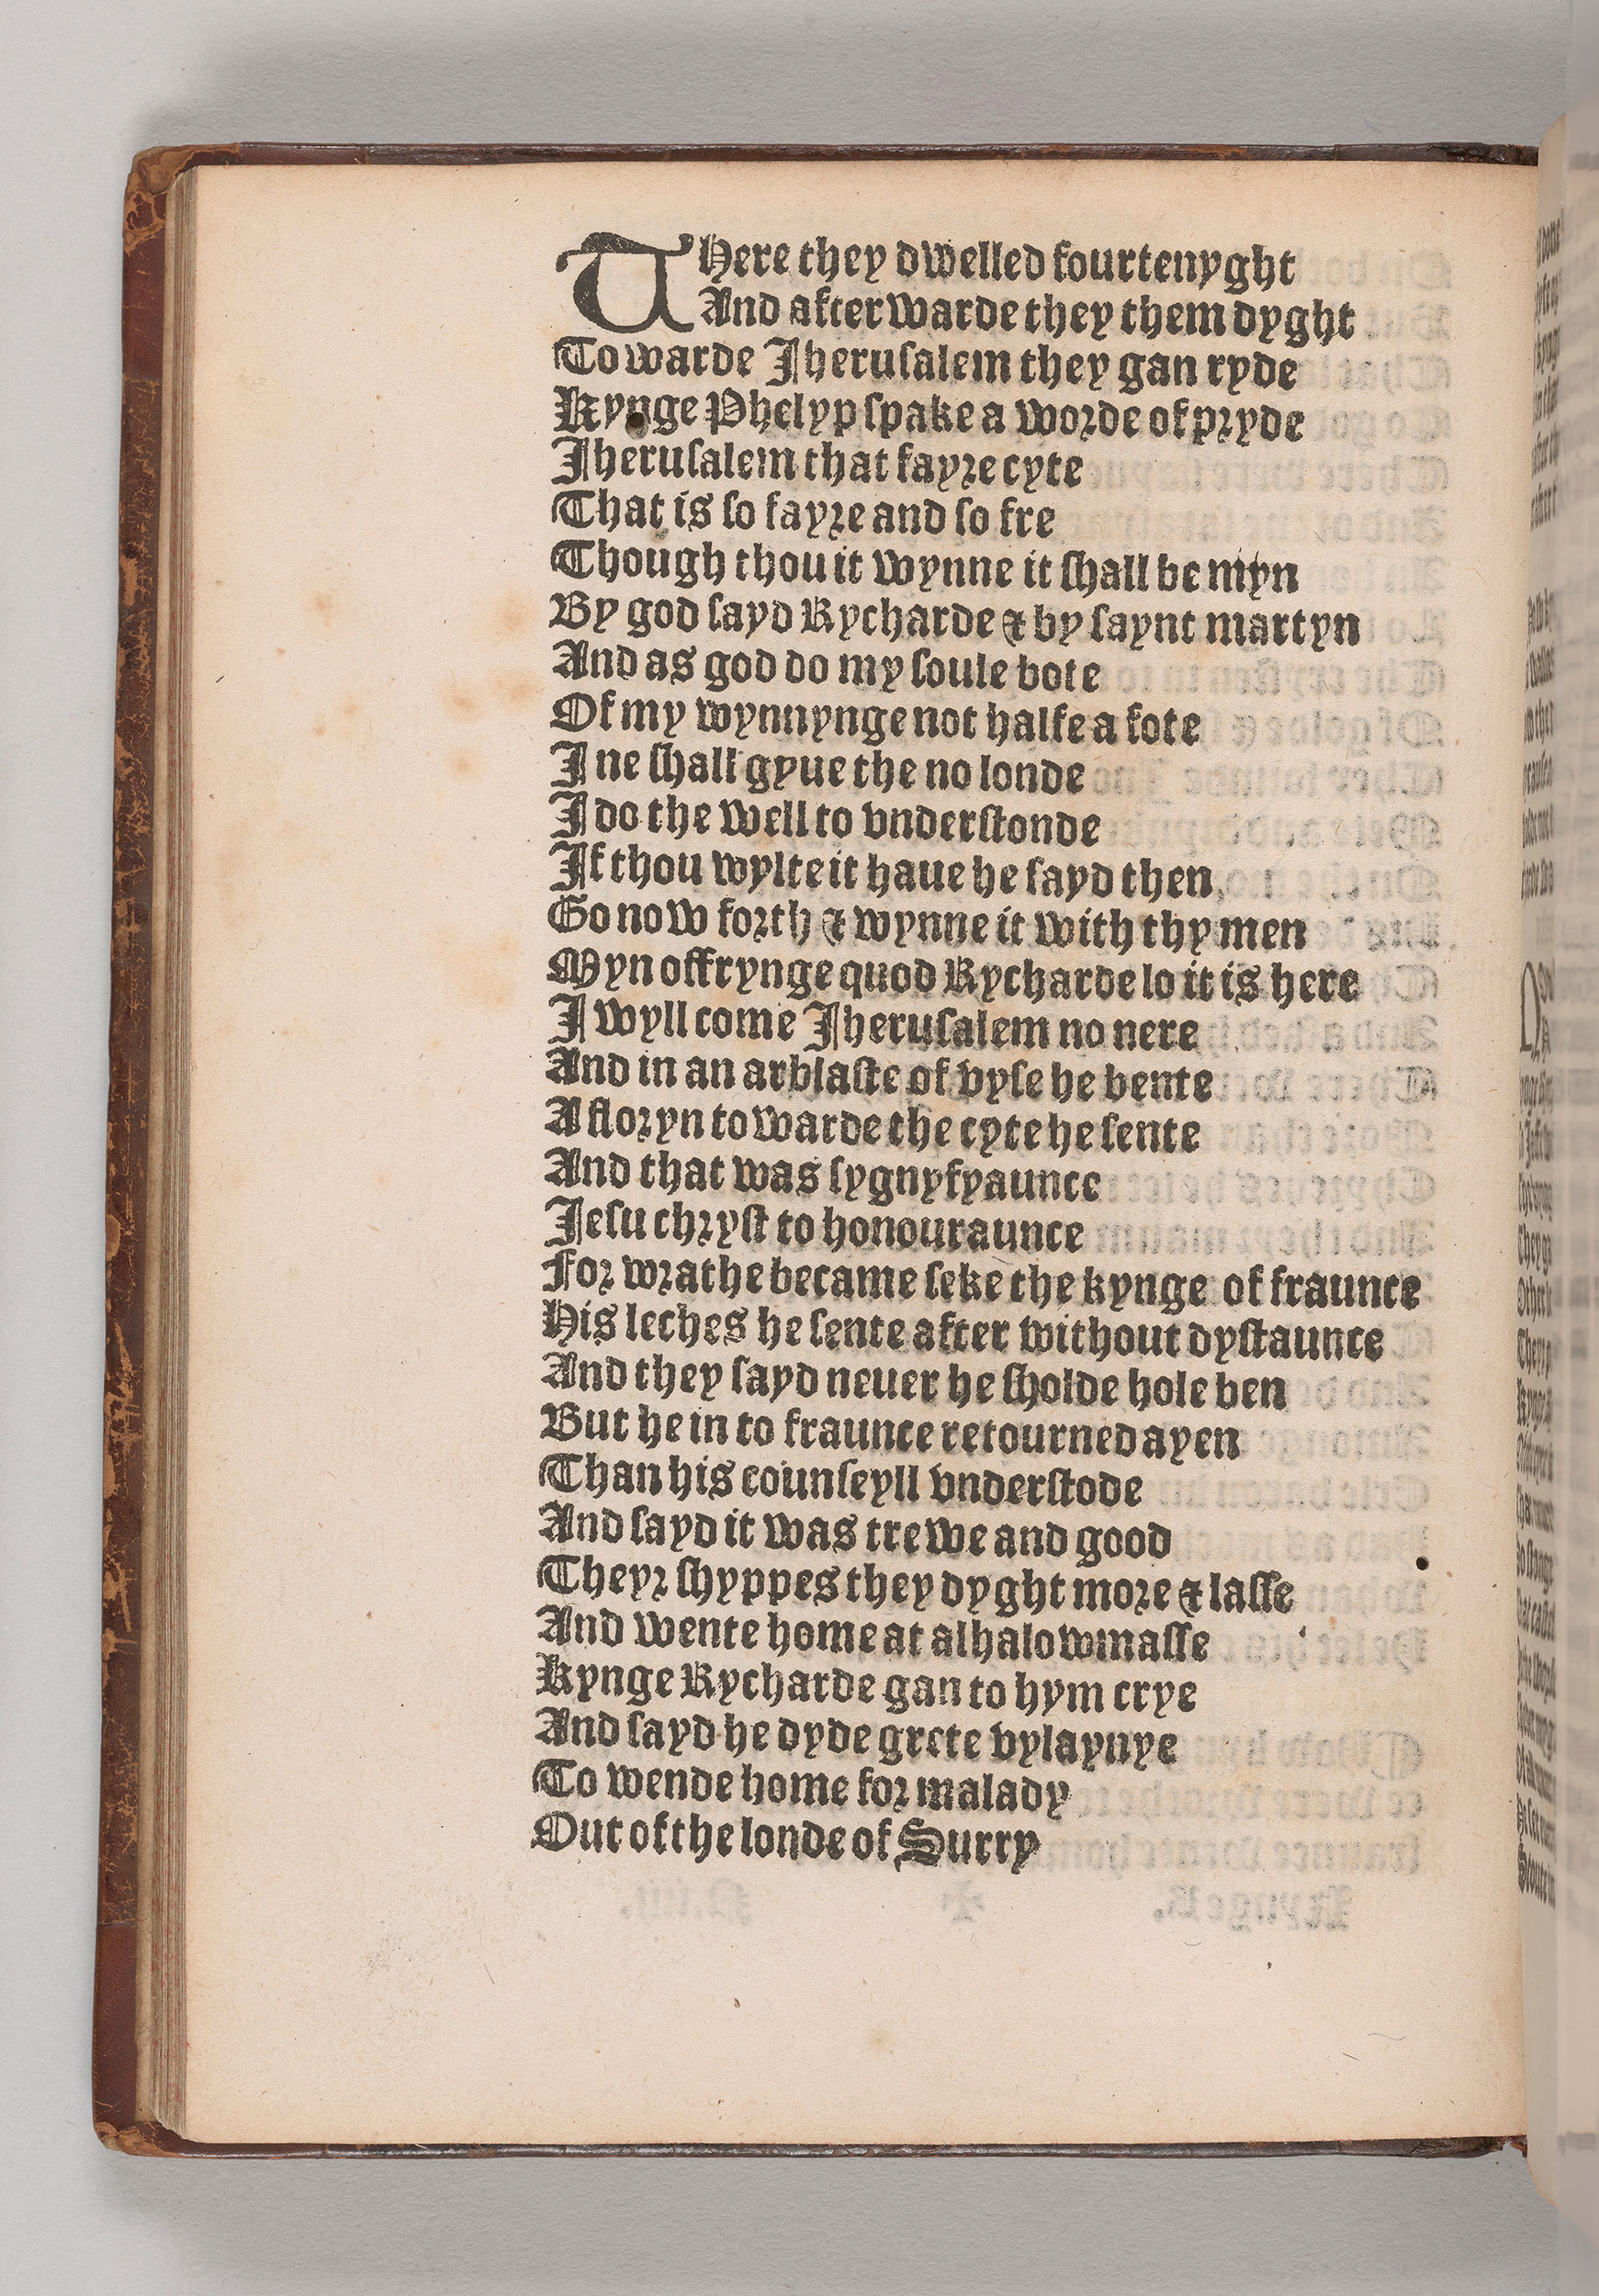 THere they dwelled fourtenyght
And afterwarde they them dyght
Towarde Jherusalem they gan ryde
Kynge Phelyp spake a worde of pryde
Jherusalem that fayre cyte
That is so fayre and so fre
Though thou it wynne it shall be myn
By god sayd Rycharde & by saynt martyn
And as god do my soule bote
Of my wynnynge not halfe a fote
I ne shall gyue the no londe
I do the well to vnderstonde
If thou wylte it haue he sayd then
Go now forth & wynne it with thy men
Myn offrynge quod Rycharde lo it is here
I wyll come Jherusalem no nere
And in an arblaste of vyse he bente
A floryn towarde the cyte he sente
And that was sygnyfyaunce
Jesu chryst to honouraunce
For wrathe became seke the kynge of fraunce
His leches he sente after without dystaunce
And they sayd neuer he sholde hole ben
But he in to fraunce retourned ayen
Than his counseyll vnderstode
And sayd it was trewe and good
Theyr shyppes they dyght more & lasse
And wente home at alhalowmasse
Kynge Rycharde gan to hym crye
And sayd he dyde grete vylaynye
To wende home for malady
Out of the londe of Surry